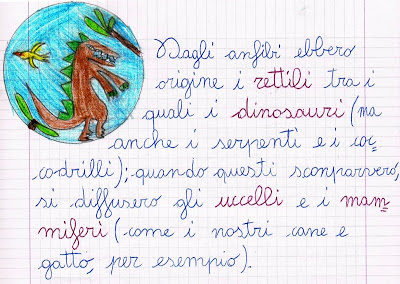 Dagli anfibi ebbero
origine i rettili tra i
quali i dinosauri (ma
anche i serpenti e i coc=
codrilli); quando questi scomparvero,
si diffusero gli uccelli e i mam=
miferi (come i nostri cane e
gatto, per esempio).